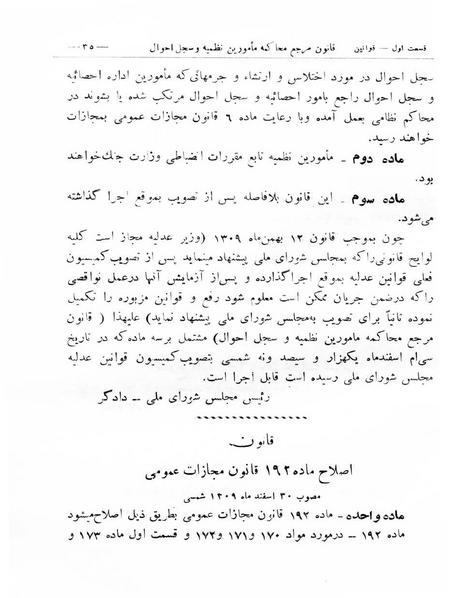 قسمت اول — قوانین قانون مرجع محاکمه مأمورین نظمیه و سجل احوال — ۳۵
سجل احوال در مورد اختلاس و ارتشاء و جرمهائی که مأمورین اداره احصائیه
و سجل احوال راجع بامور احصائیه و سجل احوال مرتکب شده یا بشوند در
محاکم نظامی بعمل آمده و با رعایت ماده ۶ قانون مجازات عمومی بمجازات
خواهند رسید.
ماده دوم ـ مأمورین نظمیه تابع مقررات انضباطی وزارت جنك خواهند
بود.
ماده سوم ـ این قانون بلافاصله پس از تصویب بموقع اجرا گذاشته
می‌شود.
چون بموجب قانون ۱۲ بهمن ماه ۱۳۰۹ (وزیر عدلیه مجاز است کلیه
لوایح قانونی را که بمجلس شورای ملی پیشنهاد مینماید پس از تصویب کمیسیون
فعلی قوانین عدلیه بموقع اجرا گذارده و پس از آزمایش آنها در عمل نواقصی
را که در ضمن جریان ممکن است معلوم شود رفع و قوانین مزبوره را تکمیل
نموده ثانیاً برای تصویب به مجلس شورای ملی پیشنهاد نماید) علیهذا ( قانون
مرجع محاکمه مأمورین نظمیه و سجل احوال) مشتمل بر سه ماده که در تاریخ
سی‌ام اسفند ماه یکهزار و سیصد و نه شمسی بتصویب کمیسیون قوانین عدلیه
مجلس شورای ملی رسیده است قابل اجرا است.
رئیس مجلس شورای ملی ــ دادگر
قانون
اصلاح ماده ۱۹۲ قانون مجازات عمومی
مصوب ۳۰ اسفند ماه ۱۳۰۹ شمسی
ماده واحده ـ ماده ۱۹۲ قانون مجازات عمومی بطریق ذیل اصلاح میشود
ماده ۱۹۲ ــ در مورد مواد ۱۷۰ و ۱۷۱ و ۱۷۲ و قسمت اول ماده ۱۷۳ و